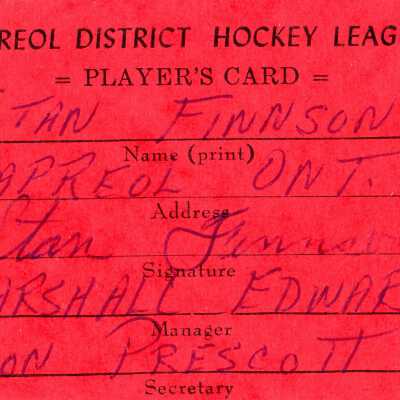 REOL DISTRICT HOCKEY LEAG
= PLAYER'S CARD =
TAN FINNSON
Name (print)
APREOL ONT.
Address
Stan Finnson
Signature
ARSHALL EDWAR
Manager
ON PRESCOTT
Secretary